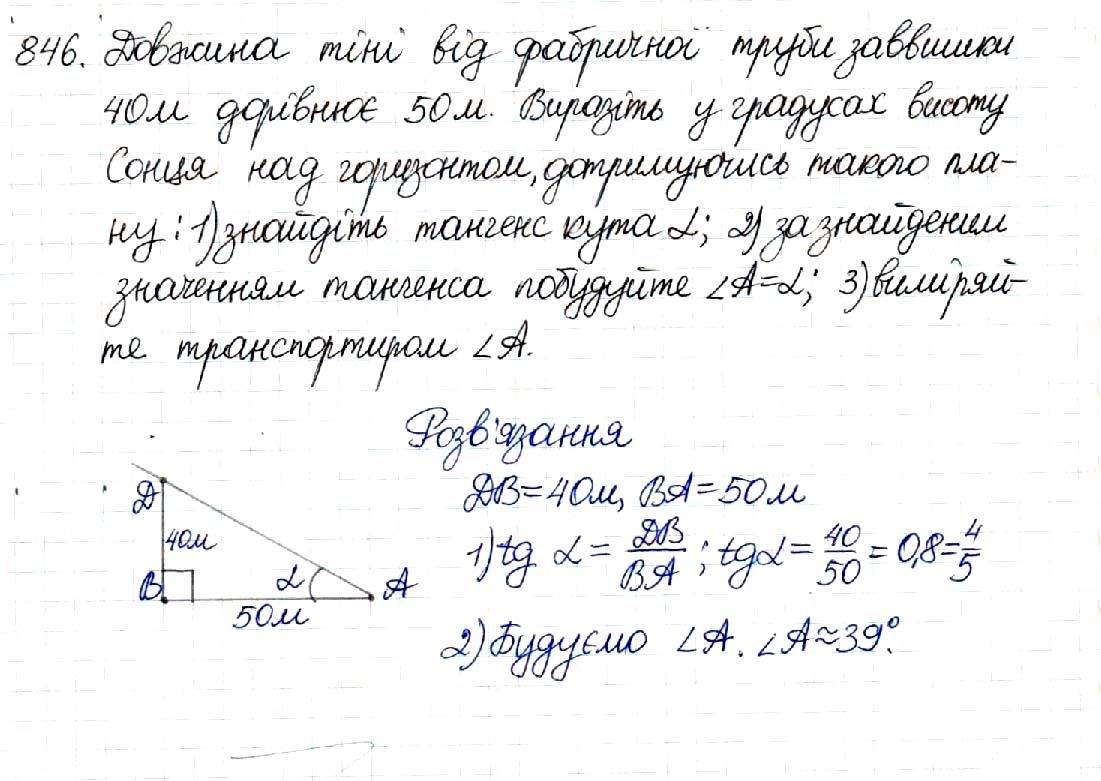 846. Довжина тіні від фабричної труби заввишки
40м дорівнює 50м. Виразіть у градусах висоту
Сонця над горизонтом, дотримуючись такого пла-
ну: 1) знайдіть тангенс кута α; 2) за знайденим
значенням тангенса побудуйте ∠A=α; 3) виміряй-
те транспортиром ∠A.
Розв'язання
DB=40м, BA=50м
1) tg α = DB/BA; tgα = 40/50 = 0,8 = 4/5
2) Будуємо ∠A. ∠A≈39°.
D
40м
B
α
A
50м